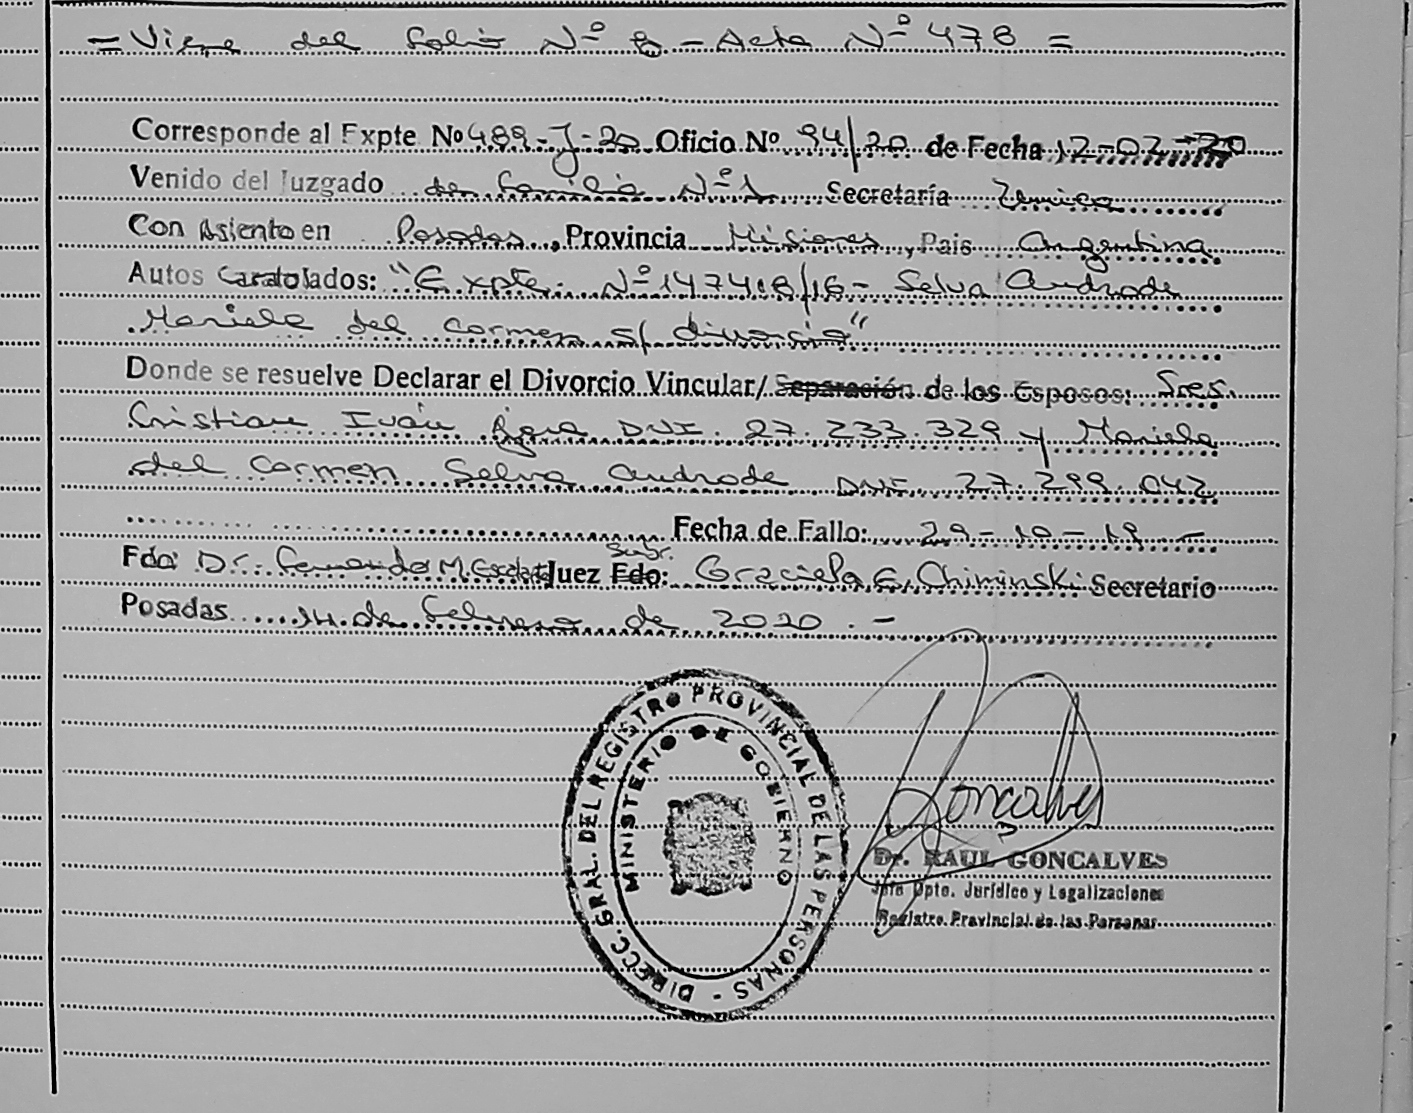 = Viene del Folio Nº 8 - Acta Nº 478 =
Corresponde al Expte Nº 489-J-20 Oficio Nº 94/20 de Fecha 12-02-20
Venido del Juzgado de Familia Nº 1 Secretaría Unica
Con Asiento en Posadas, Provincia Misiones, Pais Argentina
Autos Caratolados: "Expte. Nº 147418/16 - Selva Andrade
Mariela del Carmen s/ divorcio"
Donde se resuelve Declarar el Divorcio Vincular/ Separación de los Esposos: Sres.
Cristian Iván DNI. 27.233.329 y Mariela
del Carmen Selva Andrade DNI. 27.299.042
Fecha de Fallo: 29-10-19 -
Fdo: Dr. Fernando M. Juez Fdo: Subr. Graciela E. Chiminski Secretario
Posadas 14 de Febrero de 2020. -
DIRECC. GRAL. DEL REGISTRO PROVINCIAL DE LAS PERSONAS -
MINISTERIO DE GOBIERNO
Goncalves
Dr. RAUL GONCALVES
Jefe Dpto. Jurídico y Legalizaciones
Registro Provincial de las Personas